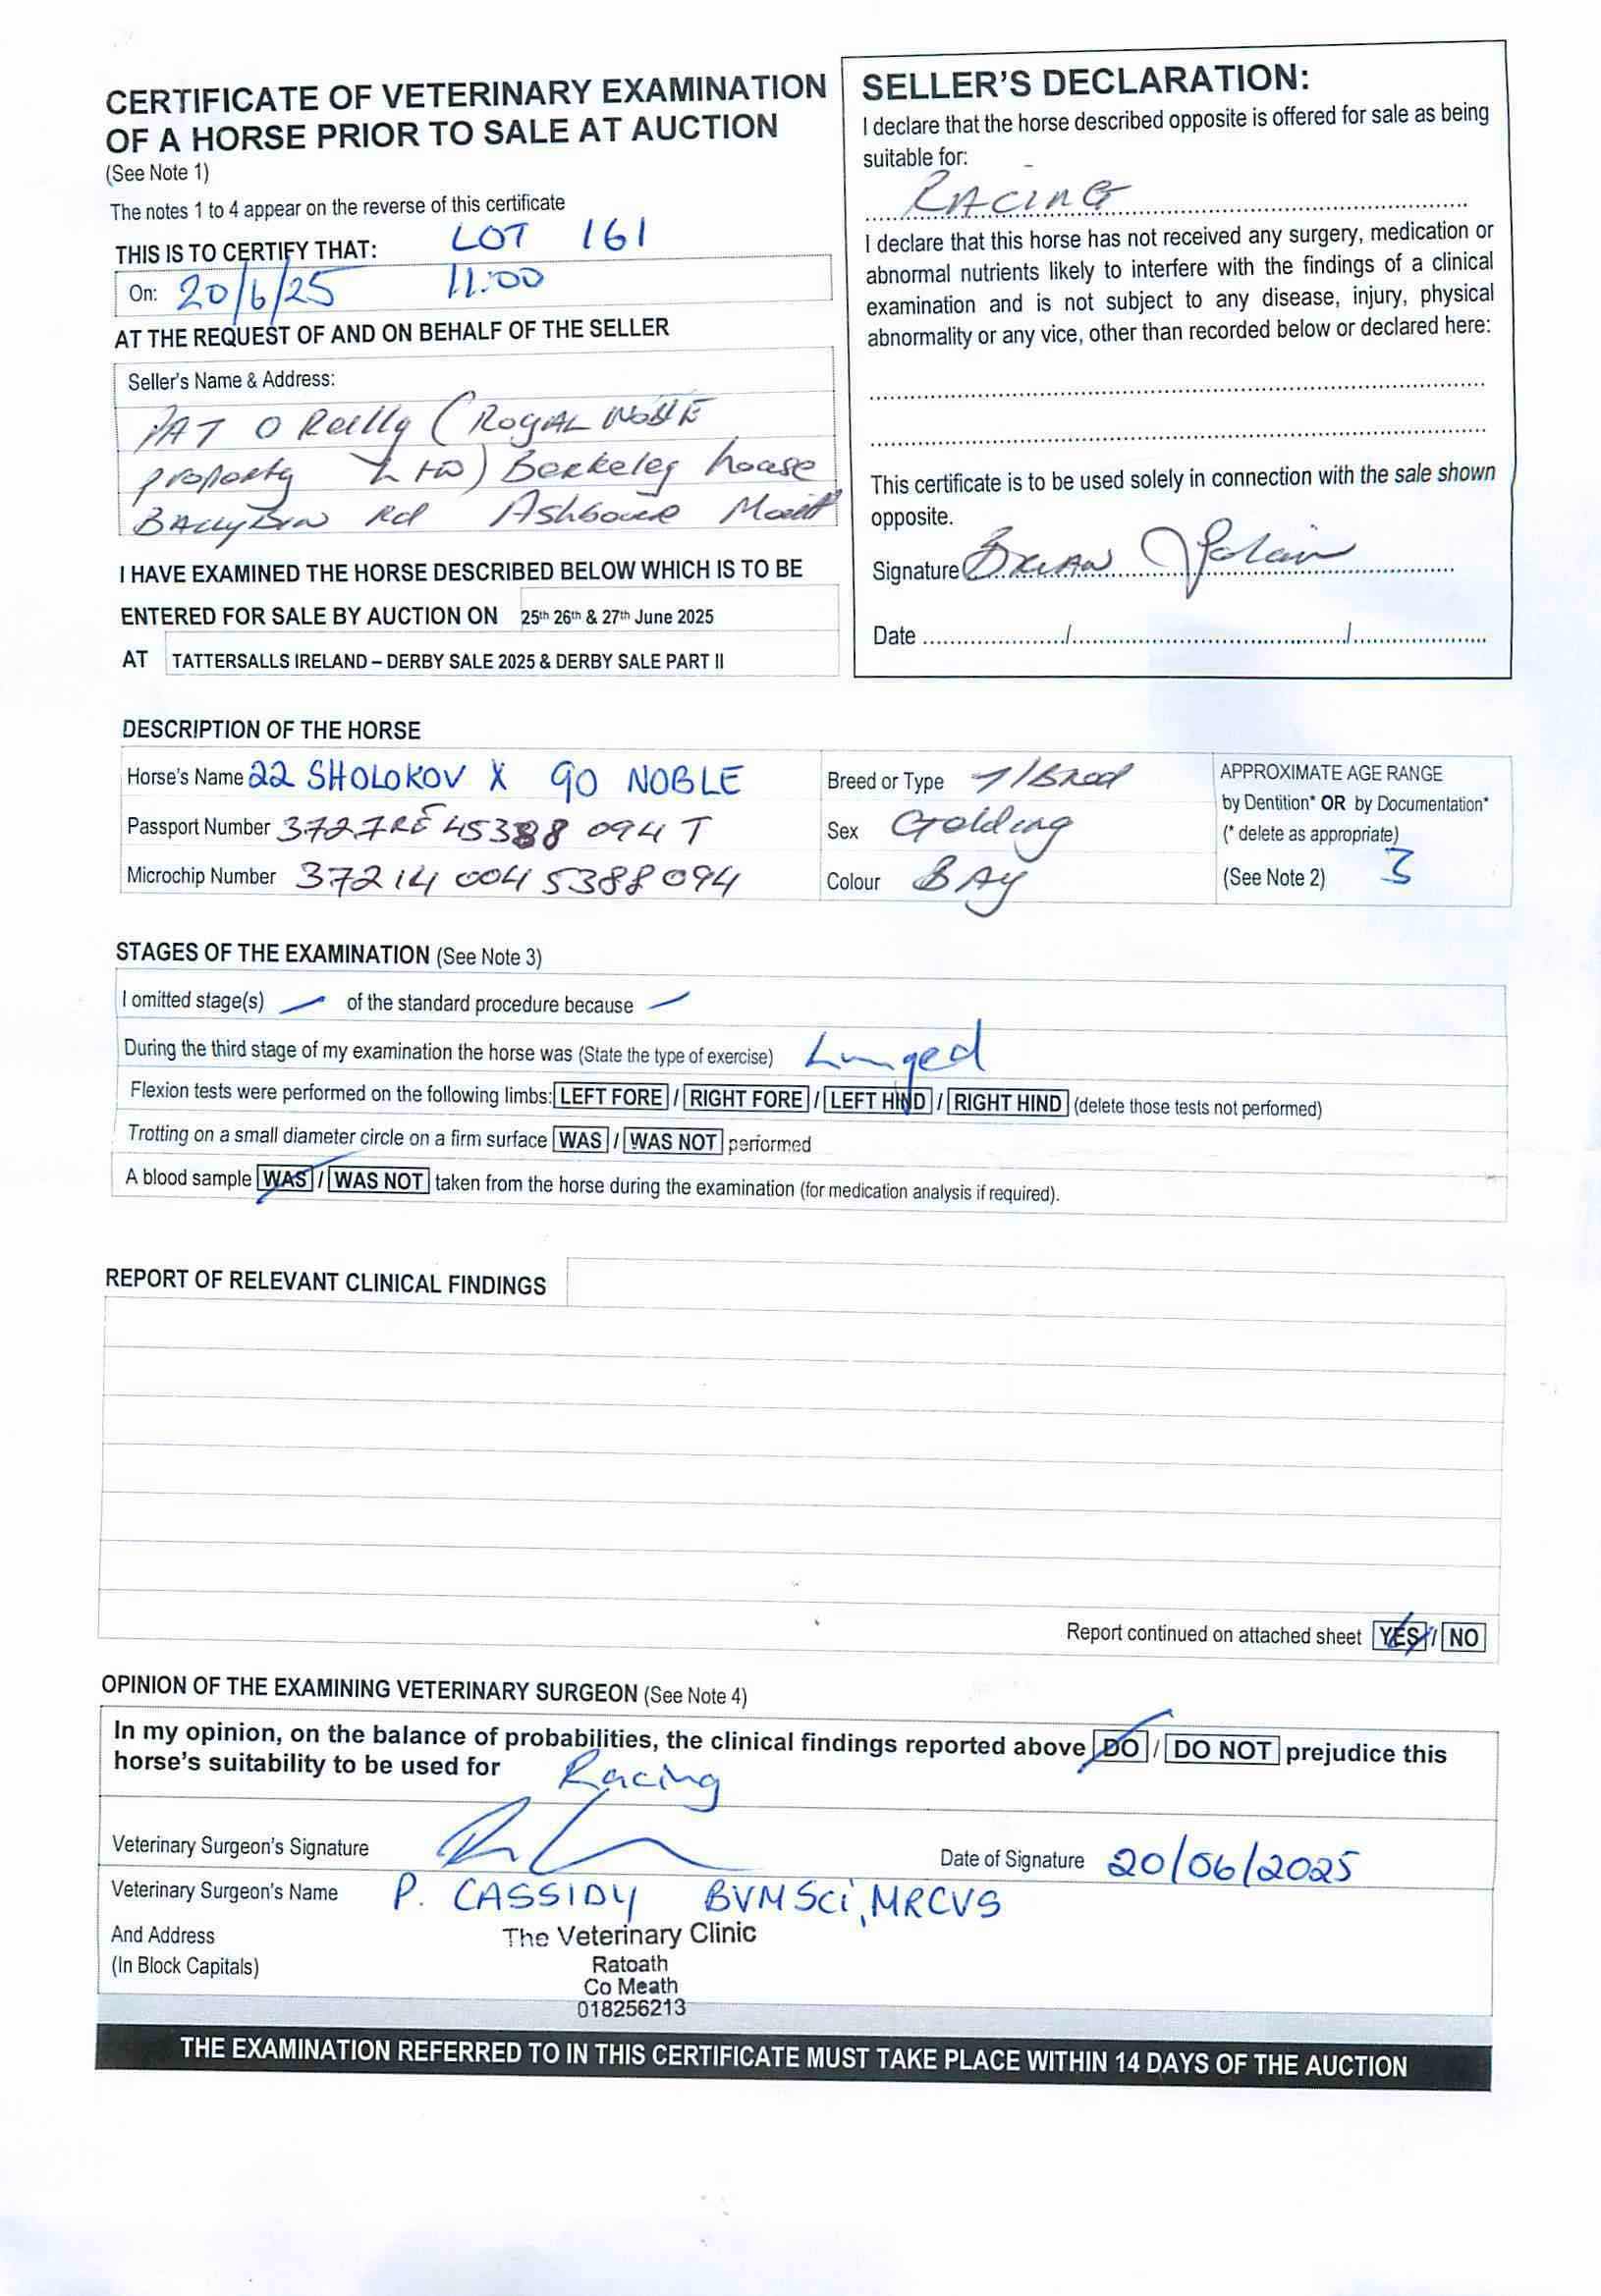 CERTIFICATE OF VETERINARY EXAMINATION
OF A HORSE PRIOR TO SALE AT AUCTION
(See Note 1)
The notes 1 to 4 appear on the reverse of this certificate
LOT 161
THIS IS TO CERTIFY THAT:
On: 20/6/25 11:00
AT THE REQUEST OF AND ON BEHALF OF THE SELLER
Seller's Name & Address:
PAT O Reilly (ROYAL NOBLE
property LTD) Berkeley house
BALLYBIN Rd Ashbourne Meath
I HAVE EXAMINED THE HORSE DESCRIBED BELOW WHICH IS TO BE
ENTERED FOR SALE BY AUCTION ON 25th 26th & 27th June 2025
AT TATTERSALLS IRELAND – DERBY SALE 2025 & DERBY SALE PART II
SELLER'S DECLARATION:
I declare that the horse described opposite is offered for sale as being
suitable for:
RACING
I declare that this horse has not received any surgery, medication or
abnormal nutrients likely to interfere with the findings of a clinical
examination and is not subject to any disease, injury, physical
abnormality or any vice, other than recorded below or declared here:
This certificate is to be used solely in connection with the sale shown
opposite.
Signature BRIAN
Date ..../..../....
DESCRIPTION OF THE HORSE
Horse's Name 22 SHOLOKOV X GO NOBLE
Passport Number 3727RE45388094T
Microchip Number 372140045388094
Breed or Type T/Bred
Sex Gelding
Colour BAY
APPROXIMATE AGE RANGE
by Dentition* OR by Documentation*
(* delete as appropriate)
(See Note 2) 3
STAGES OF THE EXAMINATION (See Note 3)
I omitted stage(s) – of the standard procedure because –
During the third stage of my examination the horse was (State the type of exercise) Lunged
Flexion tests were performed on the following limbs: LEFT FORE / RIGHT FORE / LEFT HIND / RIGHT HIND (delete those tests not performed)
Trotting on a small diameter circle on a firm surface WAS / WAS NOT performed
A blood sample WAS / WAS NOT taken from the horse during the examination (for medication analysis if required).
REPORT OF RELEVANT CLINICAL FINDINGS
Report continued on attached sheet YES / NO
OPINION OF THE EXAMINING VETERINARY SURGEON (See Note 4)
In my opinion, on the balance of probabilities, the clinical findings reported above DO / DO NOT prejudice this
horse's suitability to be used for Racing
Veterinary Surgeon's Signature
Date of Signature 20/06/2025
Veterinary Surgeon's Name P. CASSIDY BVMSci, MRCVS
And Address
(In Block Capitals)
The Veterinary Clinic
Ratoath
Co Meath
018256213
THE EXAMINATION REFERRED TO IN THIS CERTIFICATE MUST TAKE PLACE WITHIN 14 DAYS OF THE AUCTION